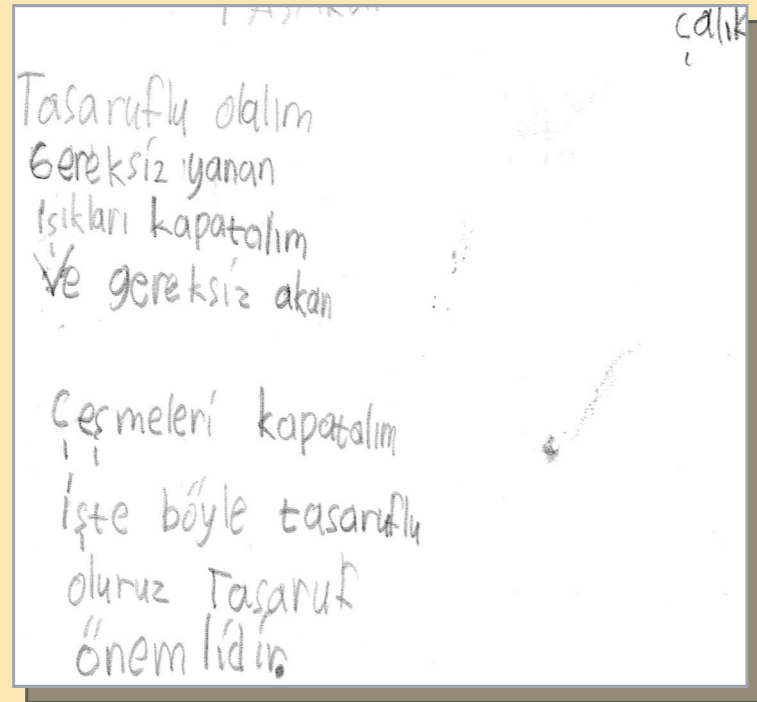 çalık
Tasaruflu olalım
Gereksiz yanan
Işıkları kapatalım
Ve gereksiz akan
Çeşmeleri kapatalım
işte böyle tasaruflu
oluruz Tasaruf
önemlidir.